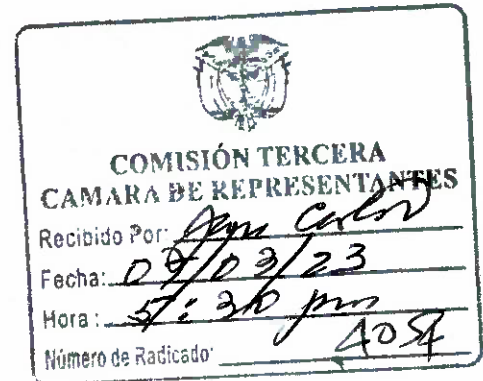 COMISIÓN TERCERA
CAMARA DE REPRESENTANTES
Recibido Por: Carlos
Fecha: /03/23
Hora: 5:30 pm
Número de Radicado: